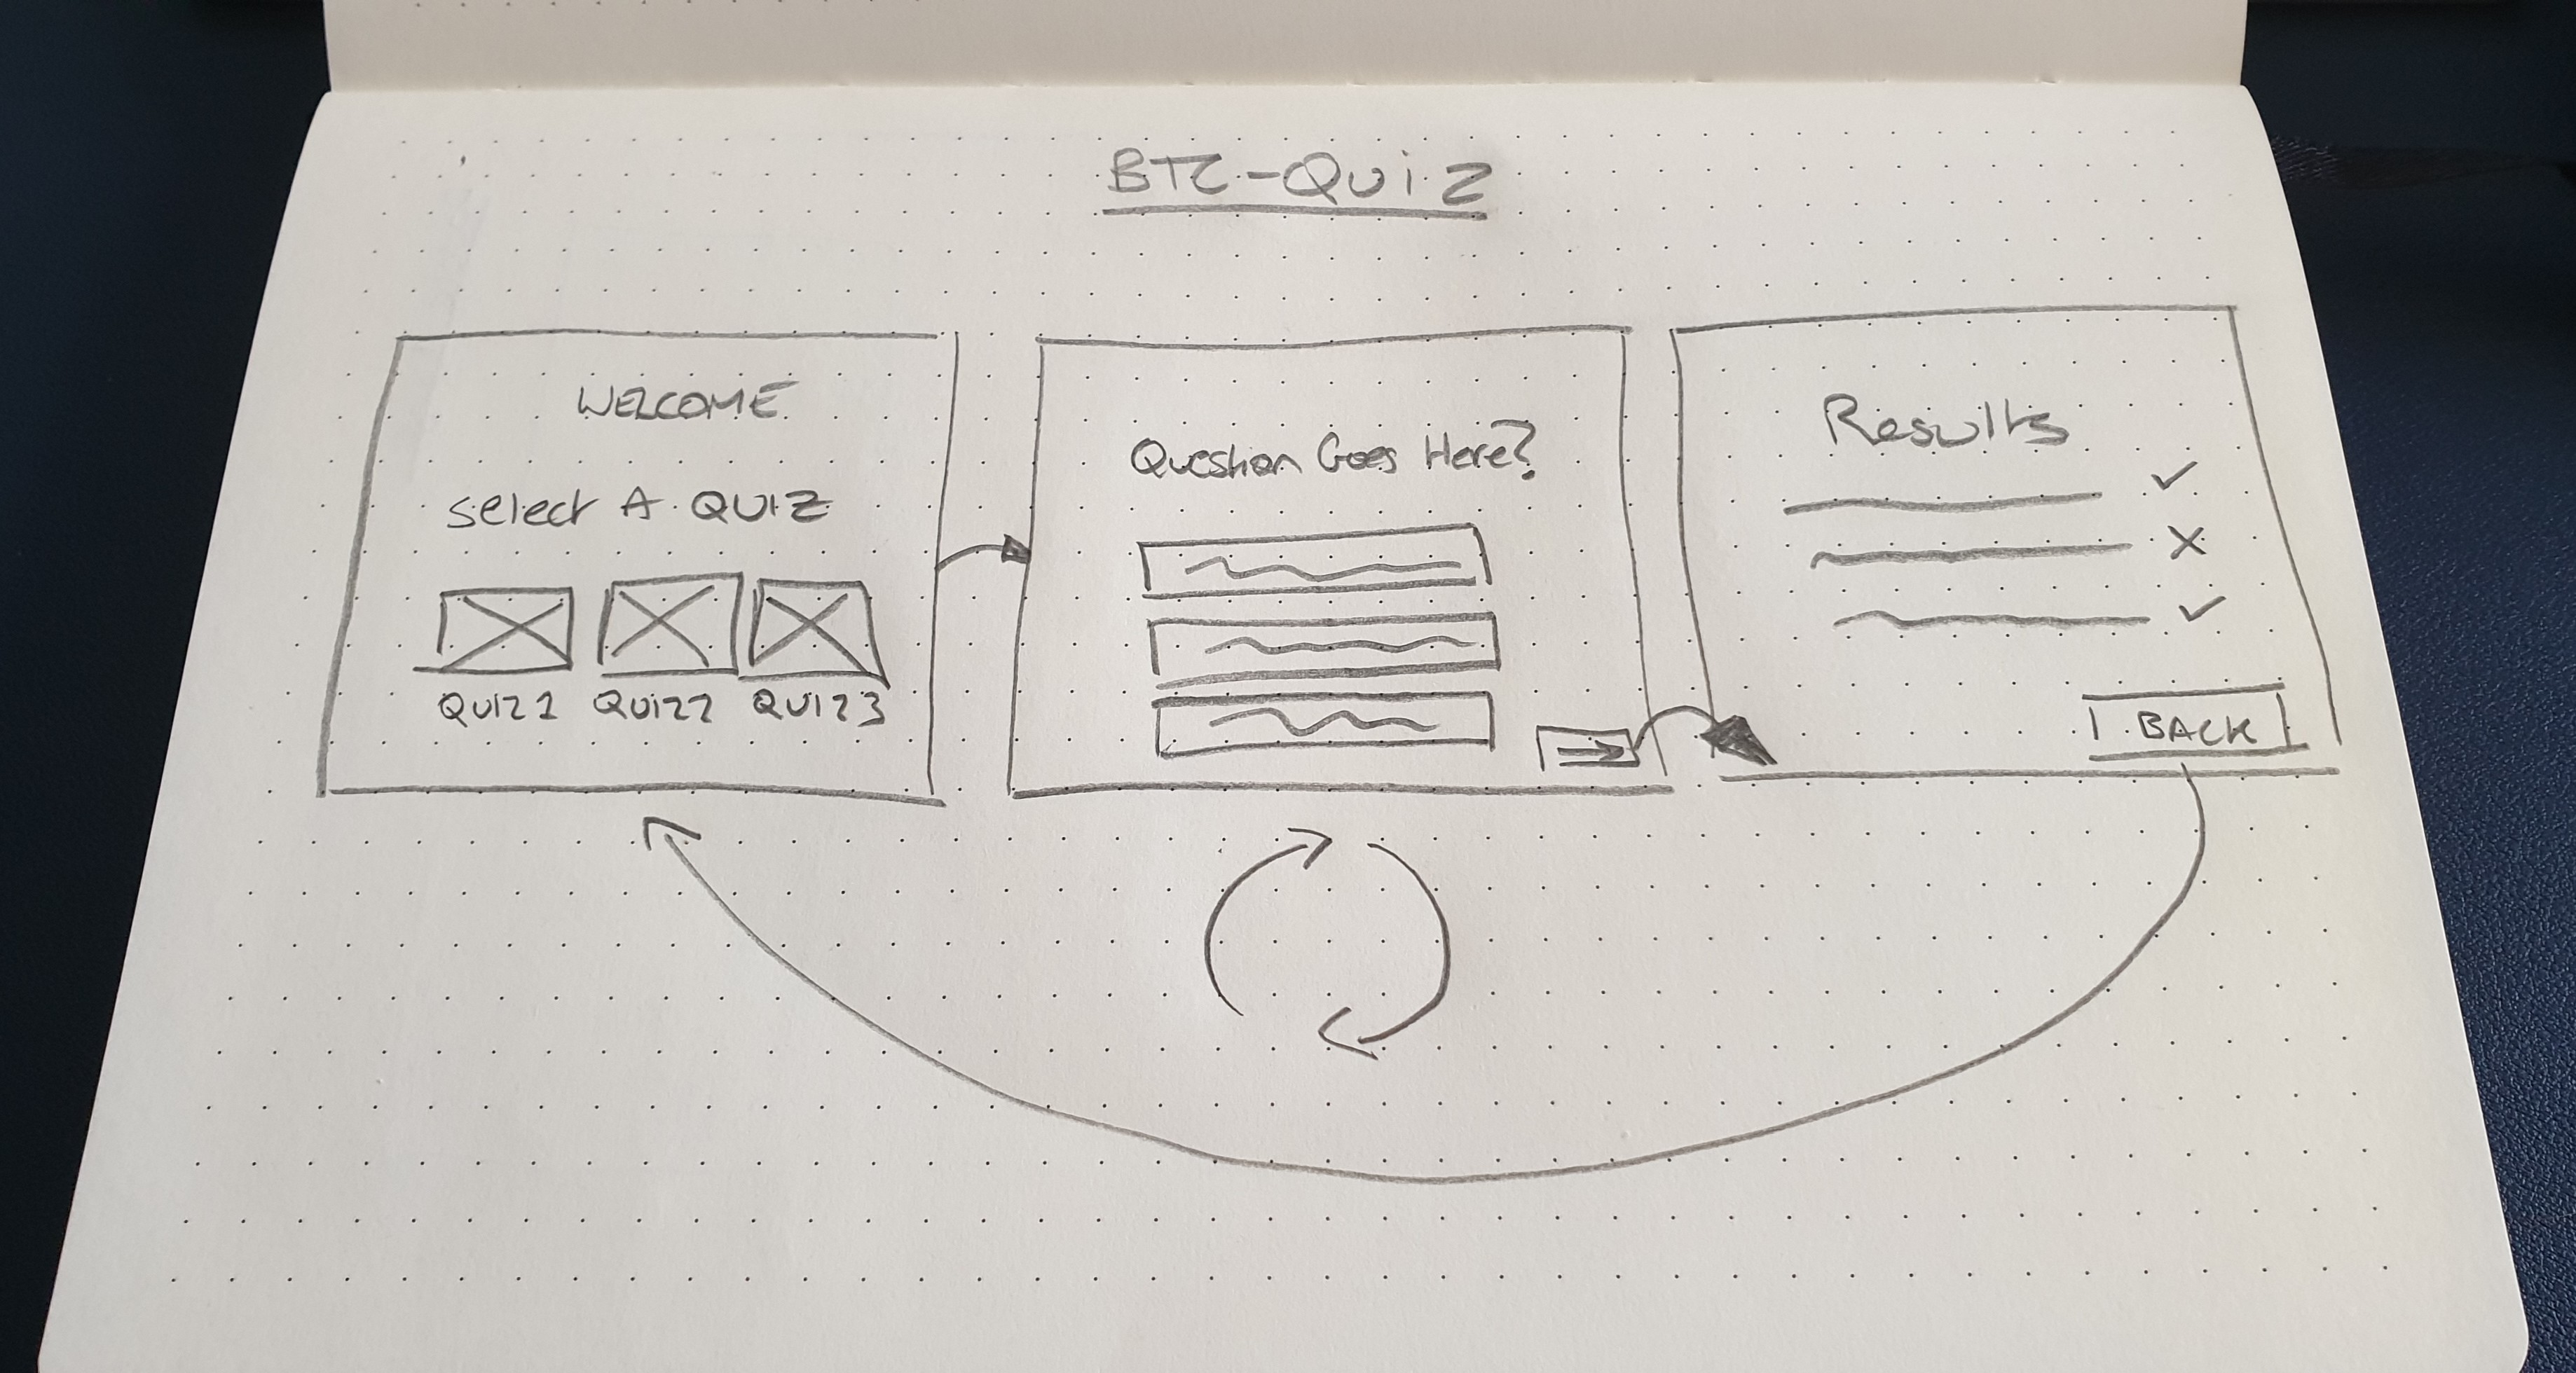 BTC-QUiZ
WELCOME
select A QUIZ
QUIZ1 QUIZ2 QUIZ3
Question Goes Here?
Results
BACK